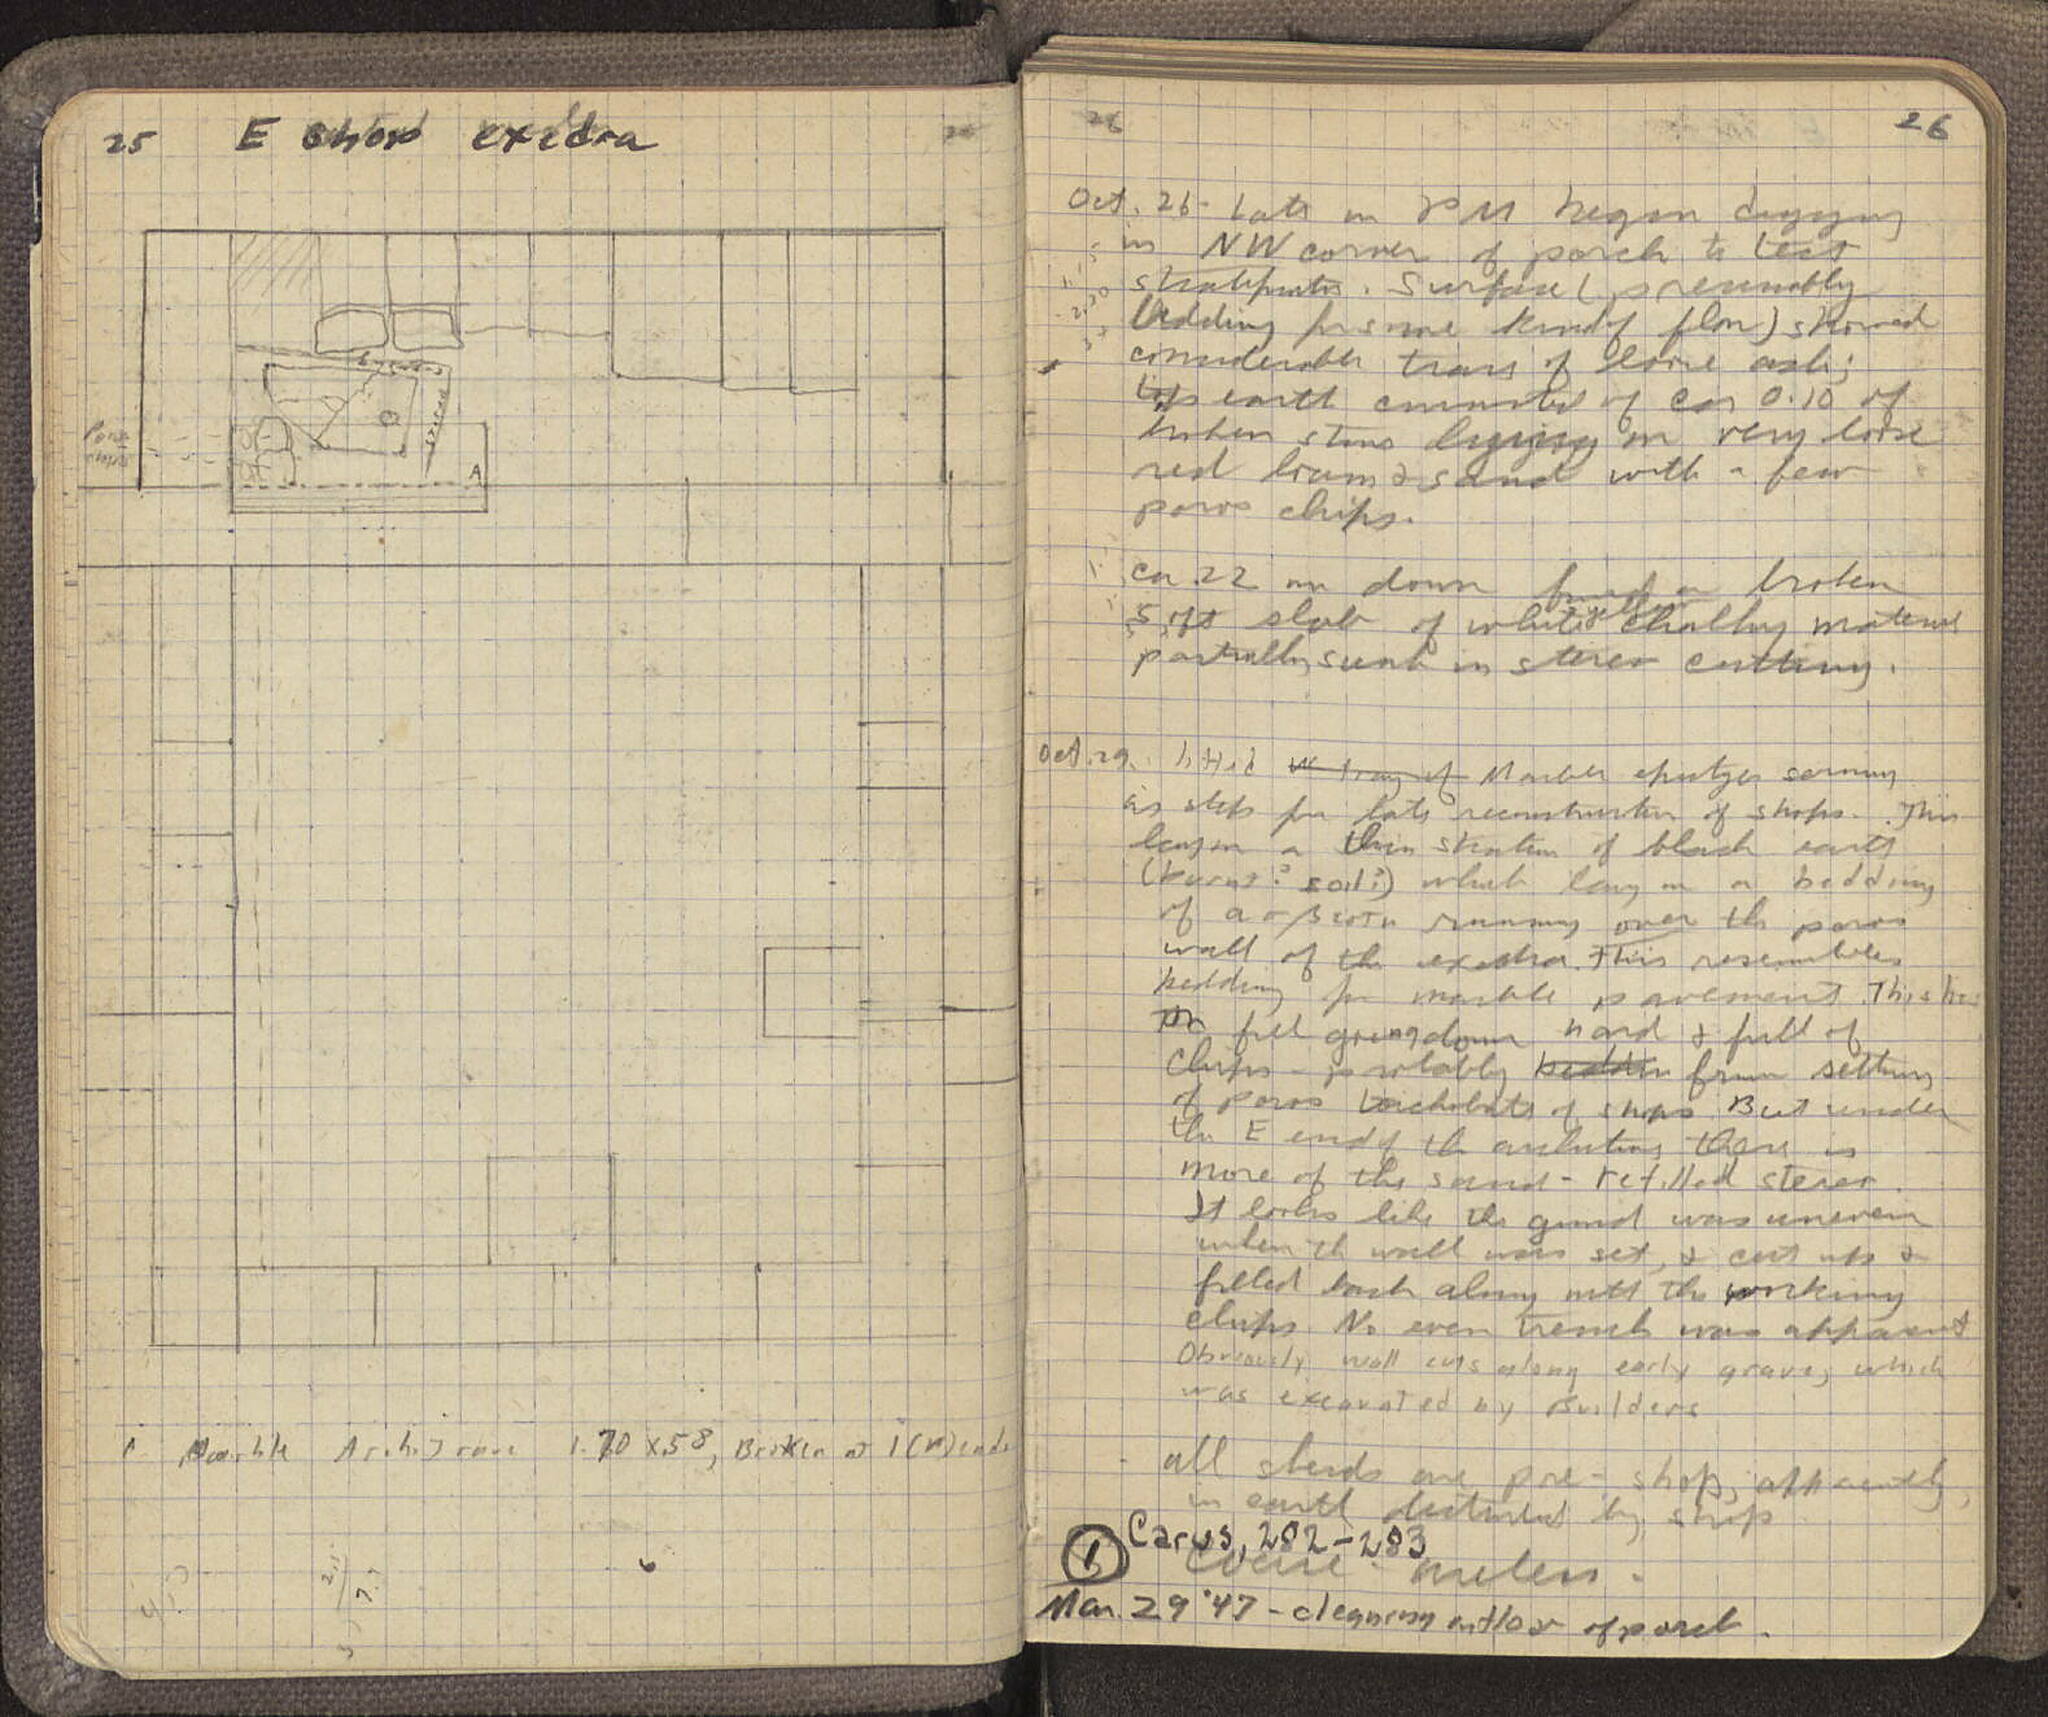 25 E shop exedra
A
1 Marble Architrave 1.70 x .58, Broken at 1 (N) end
26
Oct. 26 - Late in PM began digging
in NW corner of porch to test
Surface (presumably
bedding for some kind of floor) showed
considerable traces of loose ash;
earth consisted of ca 0.10 of
broken stones lying on very loose
red loam & sand with a few
poros chips.
ca .22 m down found a broken
soft slab of white chalky material
partially sunk in stereo cutting.
Oct. 29. lifted Marble epistyle serving
as steps for late reconstruction of shops. This
lay on a thin stratum of black earth
(burnt? soil?) which lay on a bedding
of running over the poros
wall of the exedra. This resembles
bedding for marble pavement. This has
fill going down hard & full of
chips - probably from setting
of poros toichobate of shops But under
the E end of the there is
more of the sand - refilled stereo.
It looks like the ground was uneven
when the wall was set, & cut up &
filled back along with the working
chips No even trench was apparent
Obviously wall cuts along early grave, which
was excavated by Builders
- all sherds are pre-shop, apparently,
in earth disturbed by shop
1 Carus, 282-283
Mar. 29 '47 - cleaning of porch.